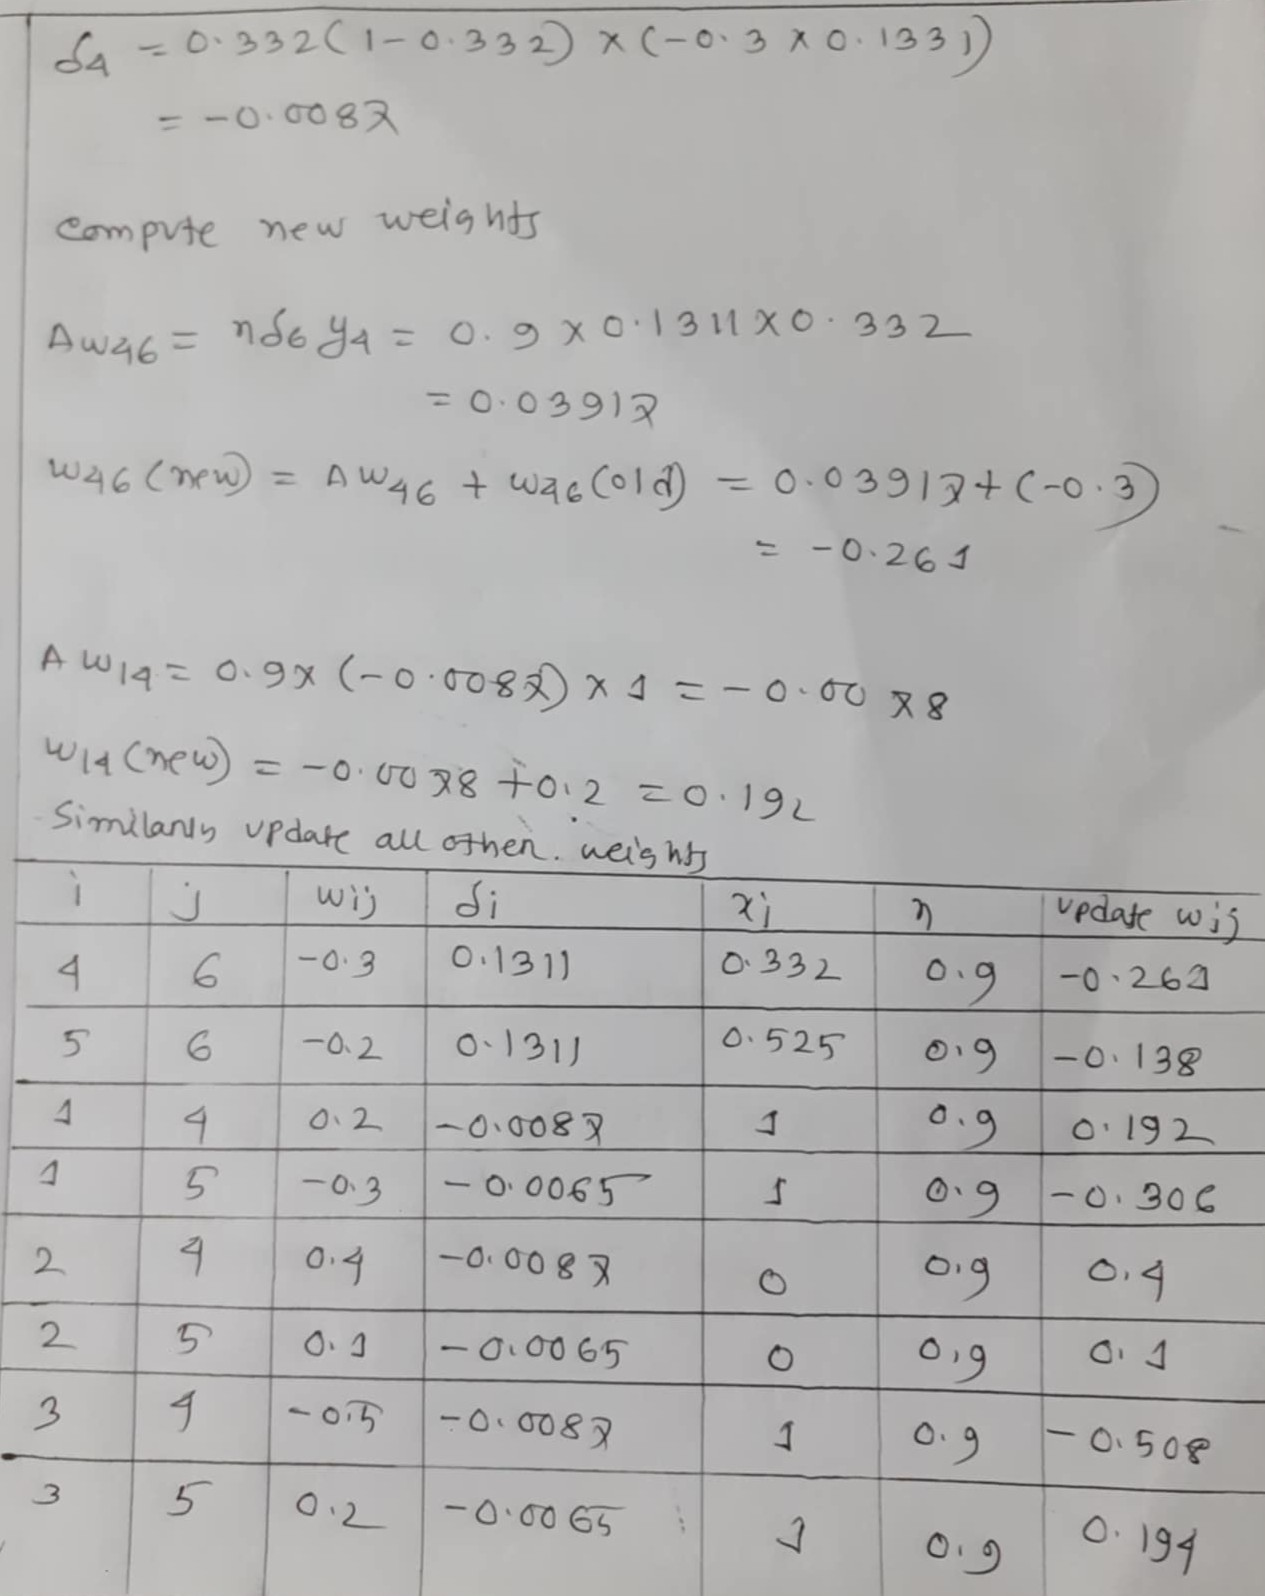 δ4 = 0.332(1-0.332) x (-0.3 x 0.1331)
= -0.0087
compute new weights
Δw46 = ηδ6 y4 = 0.9 x 0.1311 x 0.332
= 0.03917
w46 (new) = Δw46 + w46 (old) = 0.03917 + (-0.3)
= -0.261
Δw14 = 0.9x (-0.0087) x 1 = -0.0078
w14 (new) = -0.0078 + 0.2 = 0.192
Similarly update all other. weights
i j wij δi xi η update wij
4 6 -0.3 0.1311 0.332 0.9 -0.261
5 6 -0.2 0.1311 0.525 0.9 -0.138
1 4 0.2 -0.0087 1 0.9 0.192
1 5 -0.3 -0.0065 1 0.9 -0.306
2 4 0.4 -0.0087 0 0.9 0.4
2 5 0.1 -0.0065 0 0.9 0.1
3 4 -0.5 -0.0087 1 0.9 -0.508
3 5 0.2 -0.0065 1 0.9 0.194